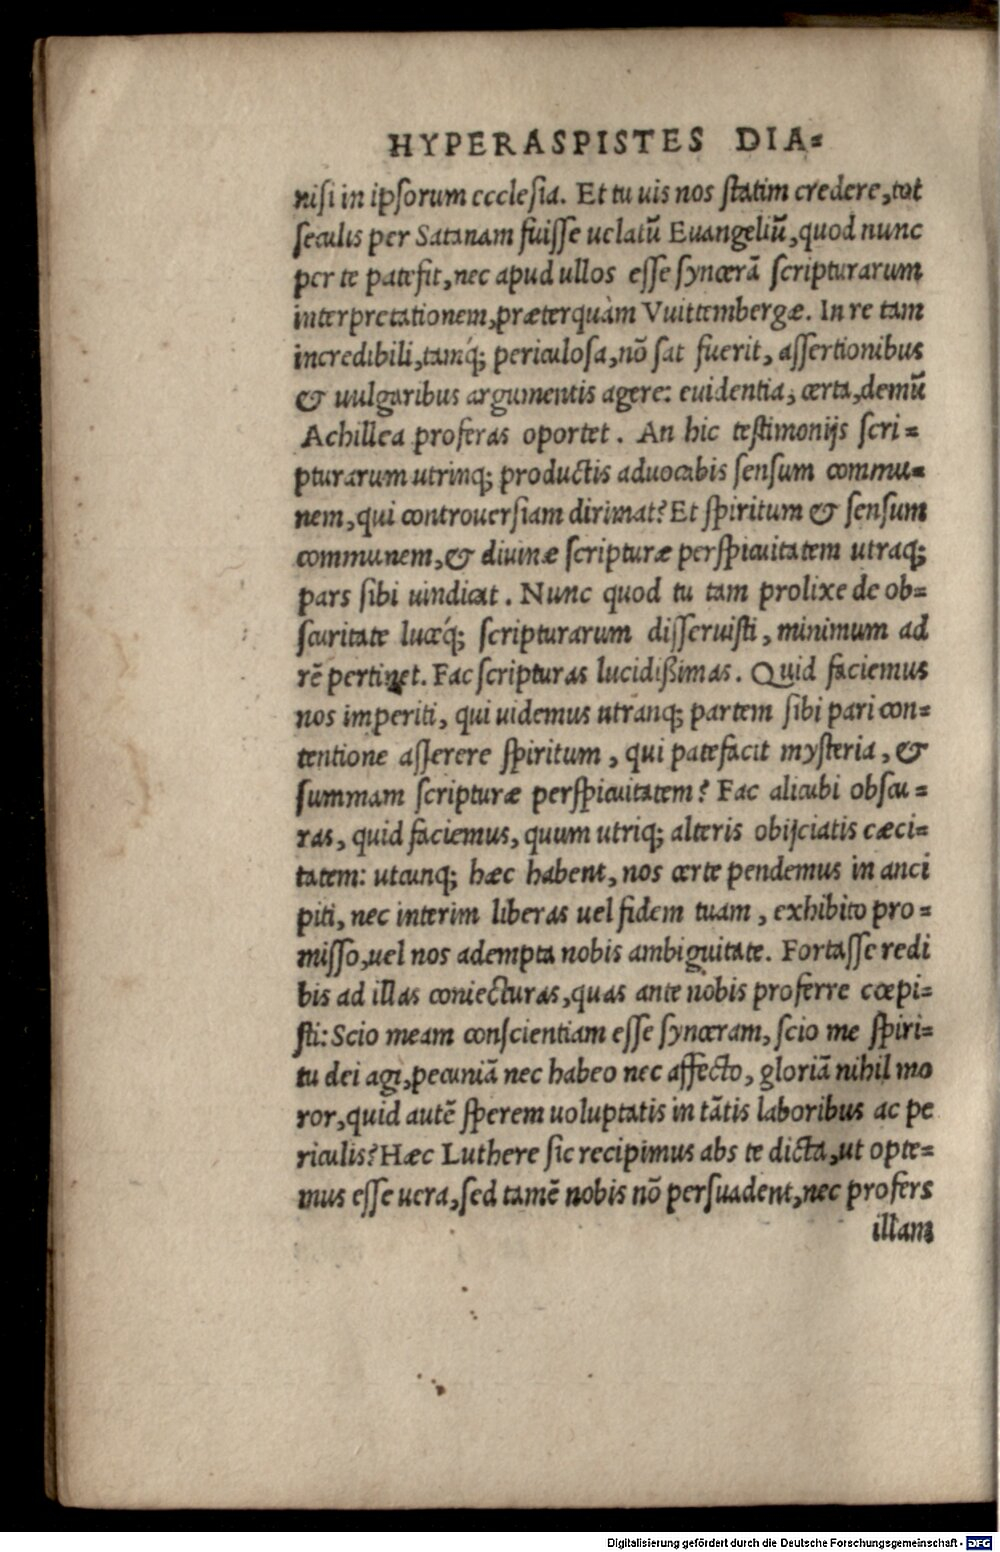 HYPERASPISTES DIA⸗
nisi in ipsorum ecclesia. Et tu uis nos statim credere, tot
seculis per Satanam fuisse uelatū Euangeliū, quod nunc
per te patefit, nec apud ullos esse syncerā scripturarum
interpretationem, præterquàm Vuittembergæ. In re tam
incredibili, tamq́; periculosa, nō sat fuerit, assertionibus
& uulgaribus argumentis agere: euidentia, certa, demū
Achillea proferas oportet. An hic testimonijs scri⸗
pturarum utrinq; productis aduocabis sensum commu⸗
nem, qui controuersiam dirimat? Et spiritum & sensum
communem, & diuinæ scripturæ perspicuitatem utraq;
pars sibi uindicat. Nunc quod tu tam prolixe de ob⸗
scuritate luceq́; scripturarum disseruisti, minimum ad
rē pertinet. Fac scripturas lucidißimas. Quid faciemus
nos imperiti, qui uidemus utranq; partem sibi pari con⸗
tentione asserere spiritum, qui patefacit mysteria, &
summam scripturæ perspicuitatem? Fac alicubi obscu⸗
ras, quid faciemus, quum utriq; alteris obijciatis cæci⸗
tatem: utcunq; hæc habent, nos certe pendemus in anci
piti, nec interim liberas uel fidem tuam, exhibito pro⸗
misso, uel nos adempta nobis ambiguitate. Fortasse redi
bis ad illas coniecturas, quas ante nobis proferre cœpi⸗
sti: Scio meam conscientiam esse synceram, scio me spiri⸗
tu dei agi, pecuniā nec habeo nec affecto, gloriā nihil mo
ror, quid autē sperem uoluptatis in tātis laboribus ac pe
riculis? Hæc Luthere sic recipimus abs te dicta, ut opte⸗
mus esse uera, sed tamē nobis nō persuadent, nec profers
illam
Digitalisierung gefördert durch die Deutsche Forschungsgemeinschaft - DFG